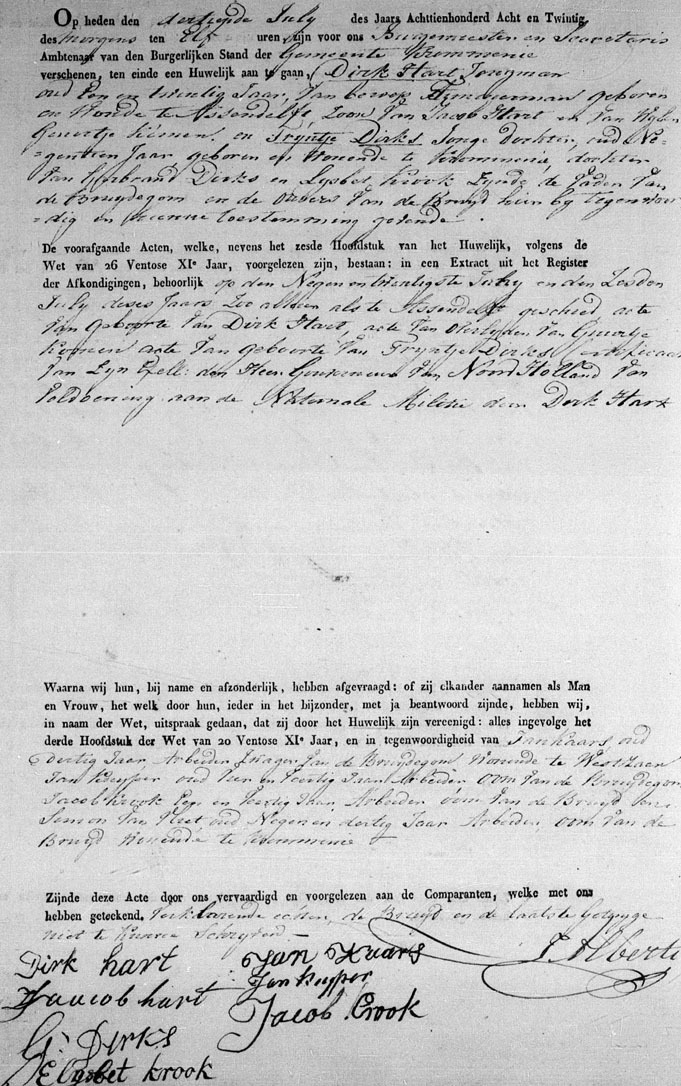 Op heden den dertiende July des Jaars Achttienhonderd Acht en Twintig,
des morgens ten Elf uren zijn voor ons Burgemeester en Secretaris
Ambtenaar van den Burgerlijken Stand der Gemeente Krommenie
verschenen, ten einde een Huwelijk aan te gaan, Dirk Hart, Jongman
oud Een en twintig Jaar, Van beroep Timmerman geboren
en Wonende te Assendelft, Zoon Van Jacob Hart en Van Wylen
Geuertje en Tryntje Dirks Jonge Dochter, oud Ne-
=gentien Jaar geboren en Wonende te Krommenie, dochter
Van Dirks en Lysbet Krook Zynde de Vader Van
de Bruydegom en de Ouders Van de Bruyd hier by tegenwoor
=dig en toestemming gevende.
De voorafgaande Acten, welke, nevens het zesde Hoofdstuk van het Huwelijk, volgens de
Wet van 26 Ventose XIe Jaar, voorgelezen zijn, bestaan: in een Extract uit het Register
der Afkondigingen, behoorlijk op den Negen en twintigste en den Zesden
July deses Jaars Zoo alhier als te Assendelft geschied, acte
Van Geboorte Van Dirk Hart, acte Van Overlyden Van Geuertje
acte Van geboorte Van Tryntje Dirks, Certificaat
Van Zyn Excell: den Heer Gouverneur Van Noord Holland Van
Voldoening aan de Nationale Militie door Dirk Hart
Waarna wij hun, bij name en afzonderlijk, hebben afgevraagd: of zij elkander aannamen als Man
en Vrouw, het welk door hun, ieder in het bijzonder, met ja beantwoord zijnde, hebben wij,
in naam der Wet, uitspraak gedaan, dat zij door het Huwelijk zijn vereenigd: alles ingevolge het
derde Hoofdstuk der Wet van 20 Ventose XIe Jaar, en in tegenwoordigheid van Jan Kaars oud
dertig Jaar Arbeider Zwager Van de Bruydegom Wonende te Westzaan
Jan Kuyper oud en Veertig Jaar Arbeider oom Van de Bruydegom
Jacob Krook en Veertig Jaar Arbeider oom Van de Bruyd en
Simon Van Vliet oud Negen en dertig Jaar Arbeider oom Van de
Bruyd Wonende te Krommenie
Zijnde deze Acte door ons vervaardigd en voorgelezen aan de Comparanten, welke met ons
hebben geteekend, Verklarende echter, de Bruyd en de laatste Getuyge
niet te Kunnen Schryven
Dirk hart Jan Kaars J. Alberti
Jaucob hart Jan Kuyper
G. Dirks Jacob Crook
Elysbet krook